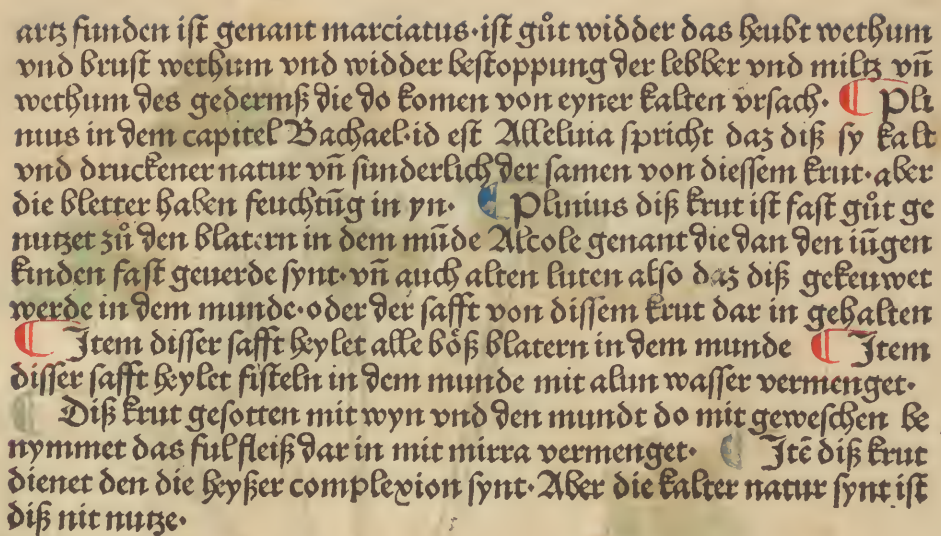 artz funden ist genant marciatus·ist gůt widder das heubt wethum
vnd brust wethum vnd widder bestoppung der lebber vnd miltz vn̄
wethum des gedermß die do komen von eyner kalten vrsach· ¶ Pli
nius in dem capitel Bachael·id est Alleluia spricht daz diß sy kalt
vnd druckener natur vn̄ sunderlich der samen von diessem krut·aber
die bletter haben feuchtūg in yn· ¶ Plinius diß krut ist fast gůt ge
nutzet zů den blatern in dem mūde Alcole genant die dan den iūgen
kinden fast geuerde synt·vn̄ auch alten luten also daz diß gekeuwet
werde in dem munde·oder der safft von dissem krut dar in gehalten
¶ Item disser safft heylet alle bo̊ß blatern in dem munde ¶ Item
disser safft heylet fisteln in dem munde mit alun wasser vermenget·
¶ Diß krut gesotten mit wyn vnd den mundt do mit geweschen be
nymmet das ful fleiß dar in mit mirra vermenget· ¶ Itē diß krut
dienet den die heyßer complexion synt·Aber die kalter natur synt ist
diß nit nutze·